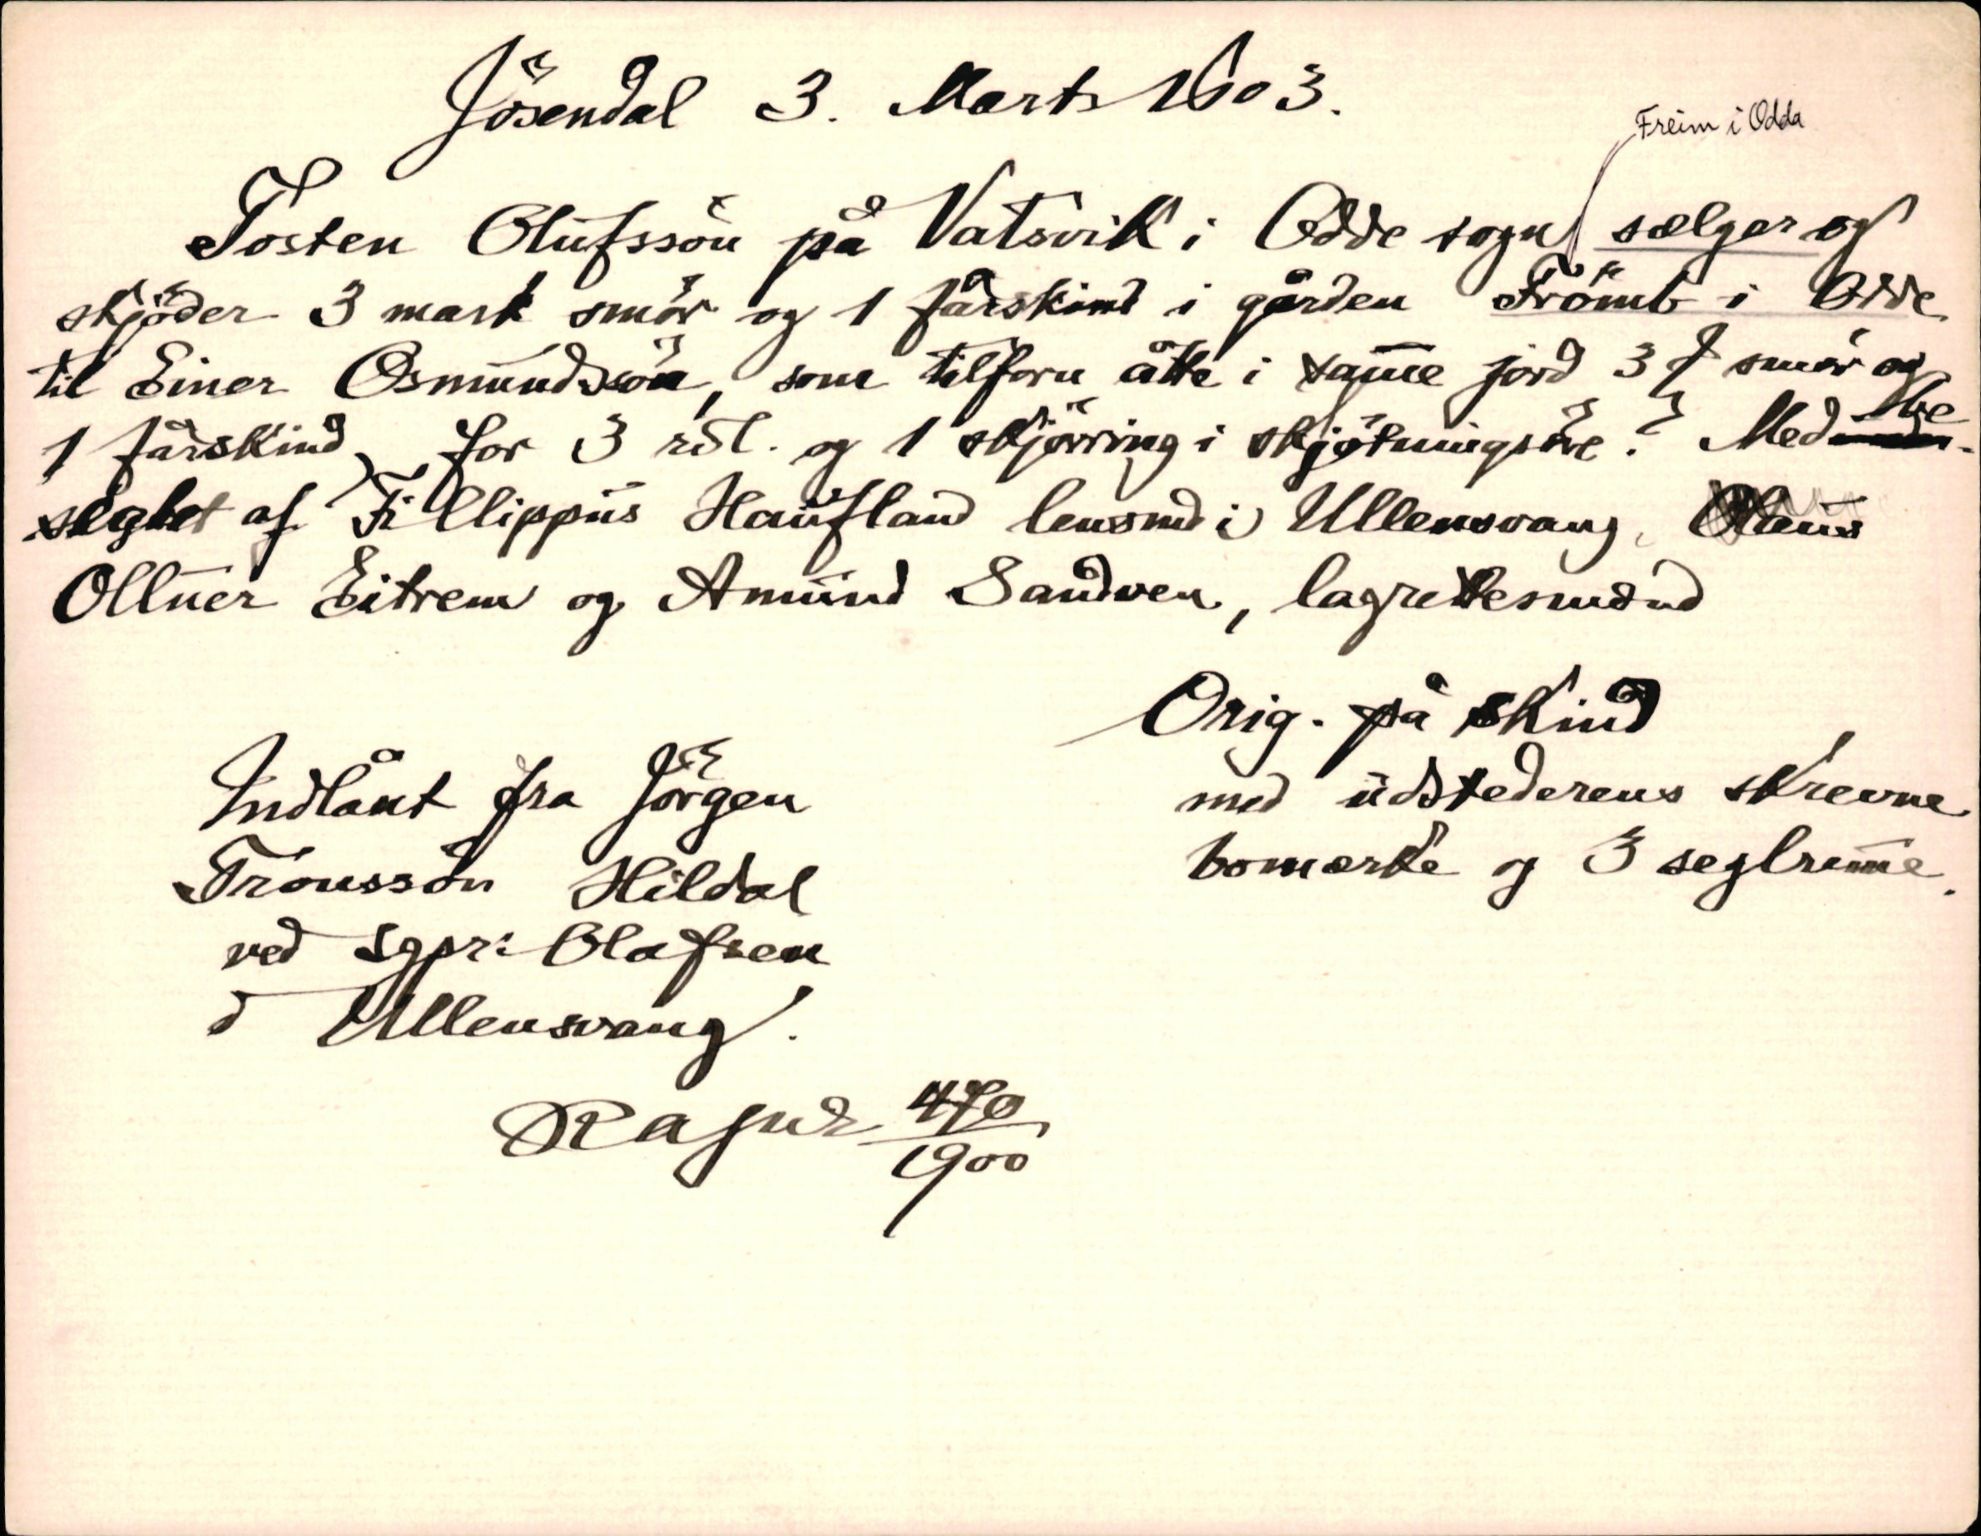 Jösendal 3. Marts 1603.
Freim i Odda
Tosten Olufssön på Vatsvik i Odde sogn sælger og
skjöder 3 mark smör og 1 fårskind i gården Frömb i Odde
til Einer Osmundssön, som tilforn åtte i samme jord 3 smör og
1 fårskind, for 3 rdl. og 1 skjörring i skjötningsöre? Medbe-
seglet af Fillippus Haufland lensmd i Ullensvang,
Olluer Eitrem og Amund Sandven, lagrettesmænd
Orig. på skind
med udstederens skrevne
bomærke og 3 seglremme.
Indlånt fra Jörgen
Tronssön Hildal
ved sgpr: Olafsen
i Ullensvang.
RA jnr 470/1900